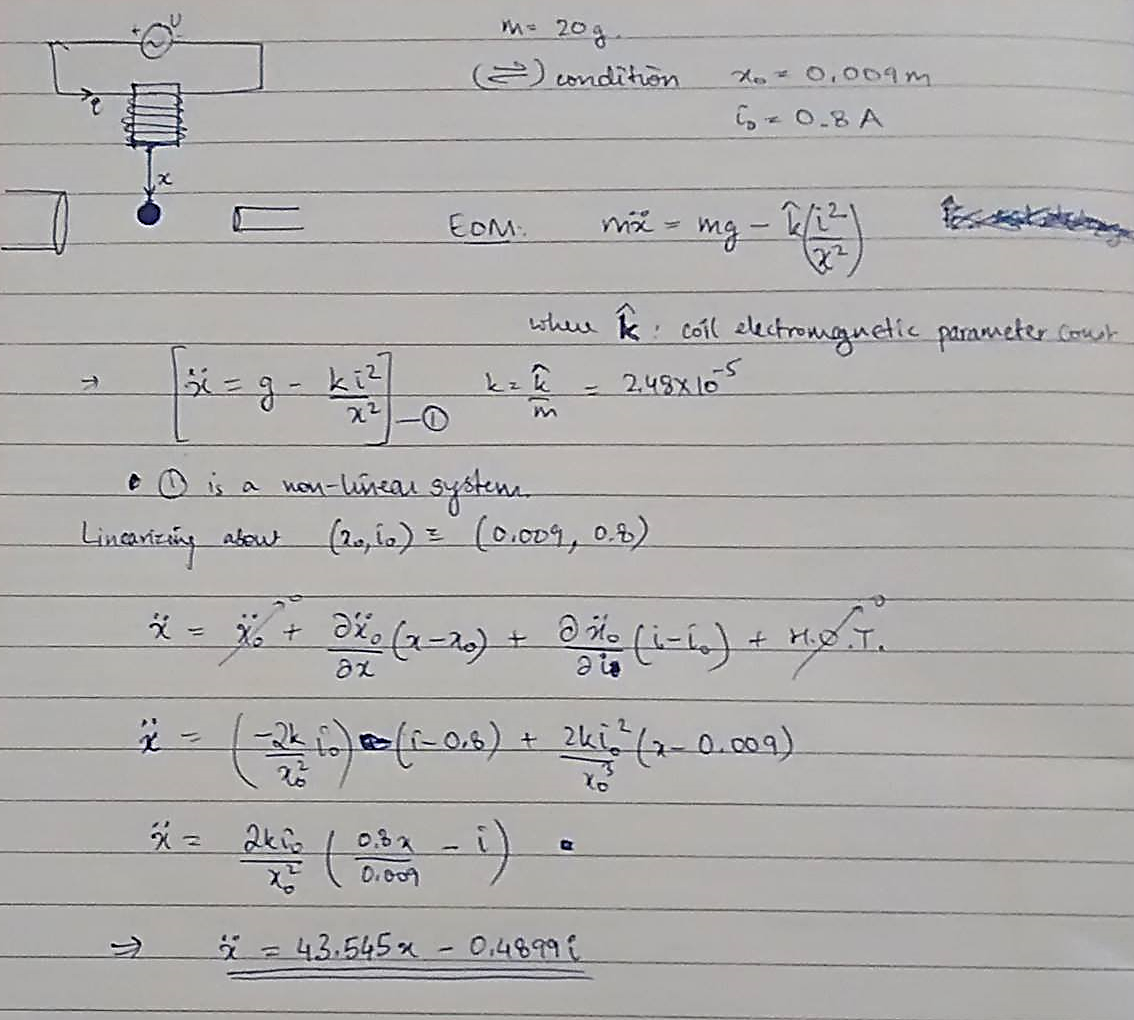 + U -
i
x
m = 20g.
(⇌) condition x₀ = 0.009m
i₀ = 0.8 A
EOM: mẍ = mg - k̂(i²/x²)
where k̂ : coil electromagnetic parameter const
→ [ẍ = g - ki²/x²] —① k = k̂/m = 2.48×10⁻⁵
• ① is a non-linear system.
Linearizing about (x₀, i₀) ≡ (0.009, 0.8)
ẍ = ẍ₀ ↗0 + ∂ẍ₀/∂x (x-x₀) + ∂ẍ₀/∂i (i-i₀) + H.O.T. ↗0
ẍ = (-2k/x₀² i₀) (i-0.8) + 2ki₀²/x₀³ (x-0.009)
ẍ = 2ki₀/x₀² (0.8x/0.009 - i)
⇒ ẍ = 43.545x - 0.4899i